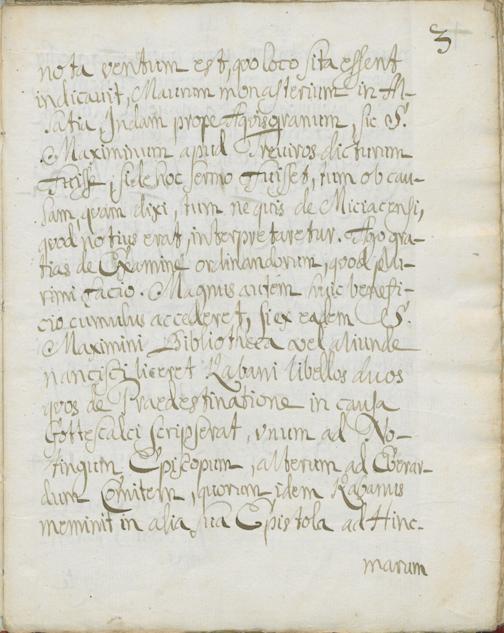 3
nota ventum est, quo loco sita essent
indicavit, Maurum monasterium in Al-
satia, Indam prope Aquisgranum, sic S.
Maximinum apud Treviros dicturum
fuisse, si de hoc sermo fuisset, tum ob cau-
sam, quam dixi, tum ne quis de Miciacensi,
quod notius erat, interpretaretur. Ago gra-
tias de Examine ordinandorum, quod plu-
rimi facio. Magnus autem huic benefi-
cio cumulus accederet, si ex eadem S.
Maximini Bibliotheca vel aliunde
nancisci liceret Rabani libellos duos
quos de Praedestinatione in causa
Gottescalci scripserat, unum ad No-
tingum Episcopum, alterum ad Eberar-
dum Comitem, quorum idem Rabanus
meminit in alia sua Epistola ad Hinc-
marum